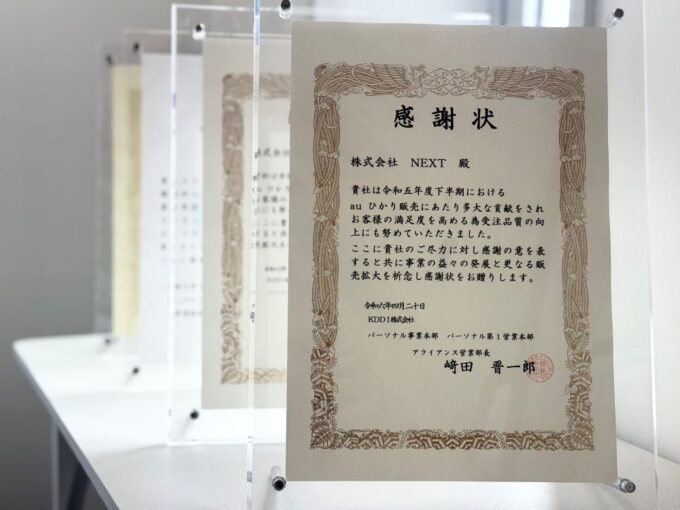 感謝状
株式会社 NEXT 殿
貴社は令和五年度下半期における
au ひかり販売にあたり多大な貢献をされ
お客様の満足度を高める為受注品質の向
上にも努めていただきました。
ここに貴社のご尽力に対し感謝の意を表
すると共に事業の益々の発展と更なる販
売拡大を祈念し感謝状をお贈りします。
令和六年四月二十日
KDDI株式会社
パーソナル事業本部 パーソナル第1営業本部
アライアンス営業部長
﨑田 晋一郎